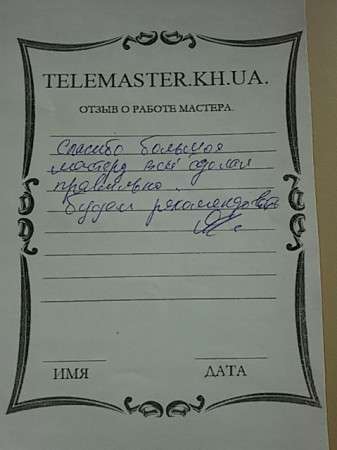 TELEMASTER.KH.UA.
ОТЗЫВ О РАБОТЕ МАСТЕРА.
Спасибо большое
мастеру всё сделал
правильно.
Будем рекомендовать
ИМЯ
ДАТА